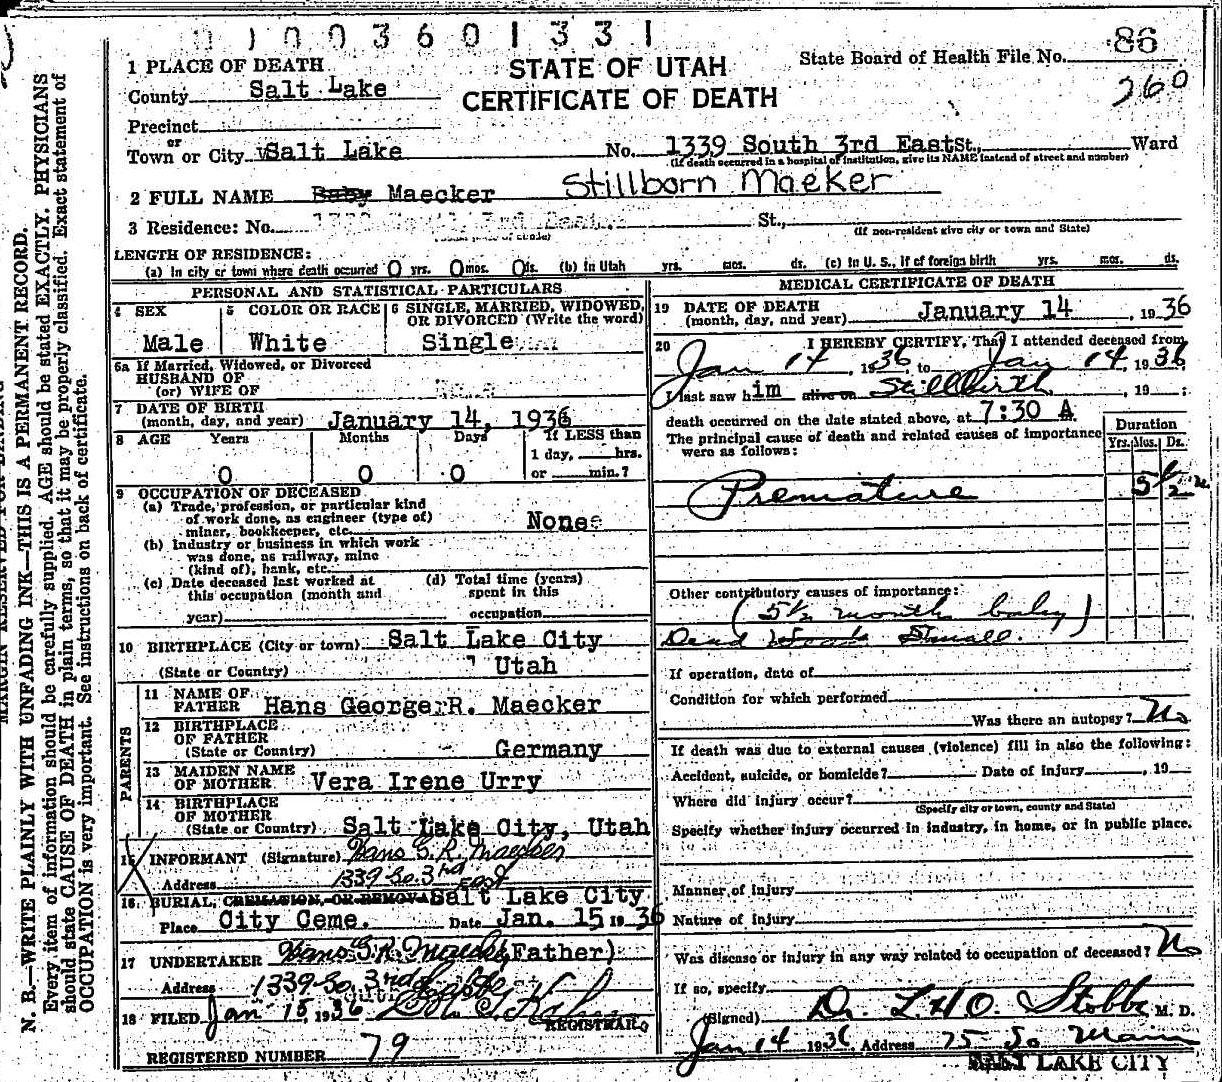 01003601331
86
STATE OF UTAH
CERTIFICATE OF DEATH
State Board of Health File No.
260
1 PLACE OF DEATH
County Salt Lake
Precinct
or
Town or City Salt Lake No. 1339 South 3rd East St., Ward
(If death occurred in a hospital or institution, give its NAME instead of street and number)
2 FULL NAME Baby Maecker Stillborn Maeker
3 Residence: No. 1339 South 3rd East St.,
(Usual place of abode) (If non-resident give city or town and State)
LENGTH OF RESIDENCE:
(a) In city or town where death occurred 0 yrs. 0 mos. 0 ds. (b) In Utah yrs. mos. ds. (c) In U. S., if of foreign birth yrs. mos. ds.
PERSONAL AND STATISTICAL PARTICULARS
4 SEX 5 COLOR OR RACE 6 SINGLE, MARRIED, WIDOWED,
OR DIVORCED (Write the word)
Male White Single
6a If Married, Widowed, or Divorced
HUSBAND OF
(or) WIFE OF
7 DATE OF BIRTH
(month, day, and year) January 14, 1936
8 AGE Years Months Days If LESS than
1 day, hrs.
0 0 0 or min.?
9 OCCUPATION OF DECEASED
(a) Trade, profession, or particular kind
of work done, as engineer (type of)
miner, bookkeeper, etc. None
(b) Industry or business in which work
was done, as railway, mine
(kind of), bank, etc.
(c) Date deceased last worked at (d) Total time (years)
this occupation (month and spent in this
year) occupation
10 BIRTHPLACE (City or town) Salt Lake City
(State or Country) Utah
PARENTS
11 NAME OF
FATHER Hans George R. Maecker
12 BIRTHPLACE
OF FATHER
(State or Country) Germany
13 MAIDEN NAME
OF MOTHER Vera Irene Urry
14 BIRTHPLACE
OF MOTHER
(State or Country) Salt Lake City, Utah
15 INFORMANT (Signature) Hans G. R. Maecker
Address 1339 So. 3rd East
16. BURIAL, CREMATION, OR REMOVAL Salt Lake City
Place City Ceme. Date Jan. 15 1936
17 UNDERTAKER Hans G. R. Maecker (Father)
Address 1339 So. 3rd East
18 FILED Jan 15, 1936
REGISTRAR
REGISTERED NUMBER 79
MEDICAL CERTIFICATE OF DEATH
19 DATE OF DEATH
(month, day, and year) January 14, 1936
20 I HEREBY CERTIFY, That I attended deceased from
Jan 14, 1936, to Jan 14, 1936
I last saw him alive on Stillbirth, 19 ;
death occurred on the date stated above, at 7:30 A
The principal cause of death and related causes of importance
were as follows:
Duration
Yrs. Mos. Ds.
Premature 5 1/2 m
Other contributory causes of importance:
(5 1/2 months baby)
Dead Small.
If operation, date of
Condition for which performed
Was there an autopsy? No
If death was due to external causes (violence) fill in also the following:
Accident, suicide, or homicide? Date of injury , 19
Where did injury occur?
(Specify city or town, county and State)
Specify whether injury occurred in industry, in home, or in public place.
Manner of injury
Nature of injury
Was disease or injury in any way related to occupation of deceased? No
If so, specify
(Signed) Dr. L. H. O. Stobbe M. D.
Jan 14 1936, Address 75 So Main
SALT LAKE CITY
MARGIN RESERVED FOR BINDING
N. B.—WRITE PLAINLY WITH UNFADING INK—THIS IS A PERMANENT RECORD.
Every item of information should be carefully supplied. AGE should be stated EXACTLY. PHYSICIANS
should state CAUSE OF DEATH in plain terms, so that it may be properly classified. Exact statement of
OCCUPATION is very important. See instructions on back of certificate.